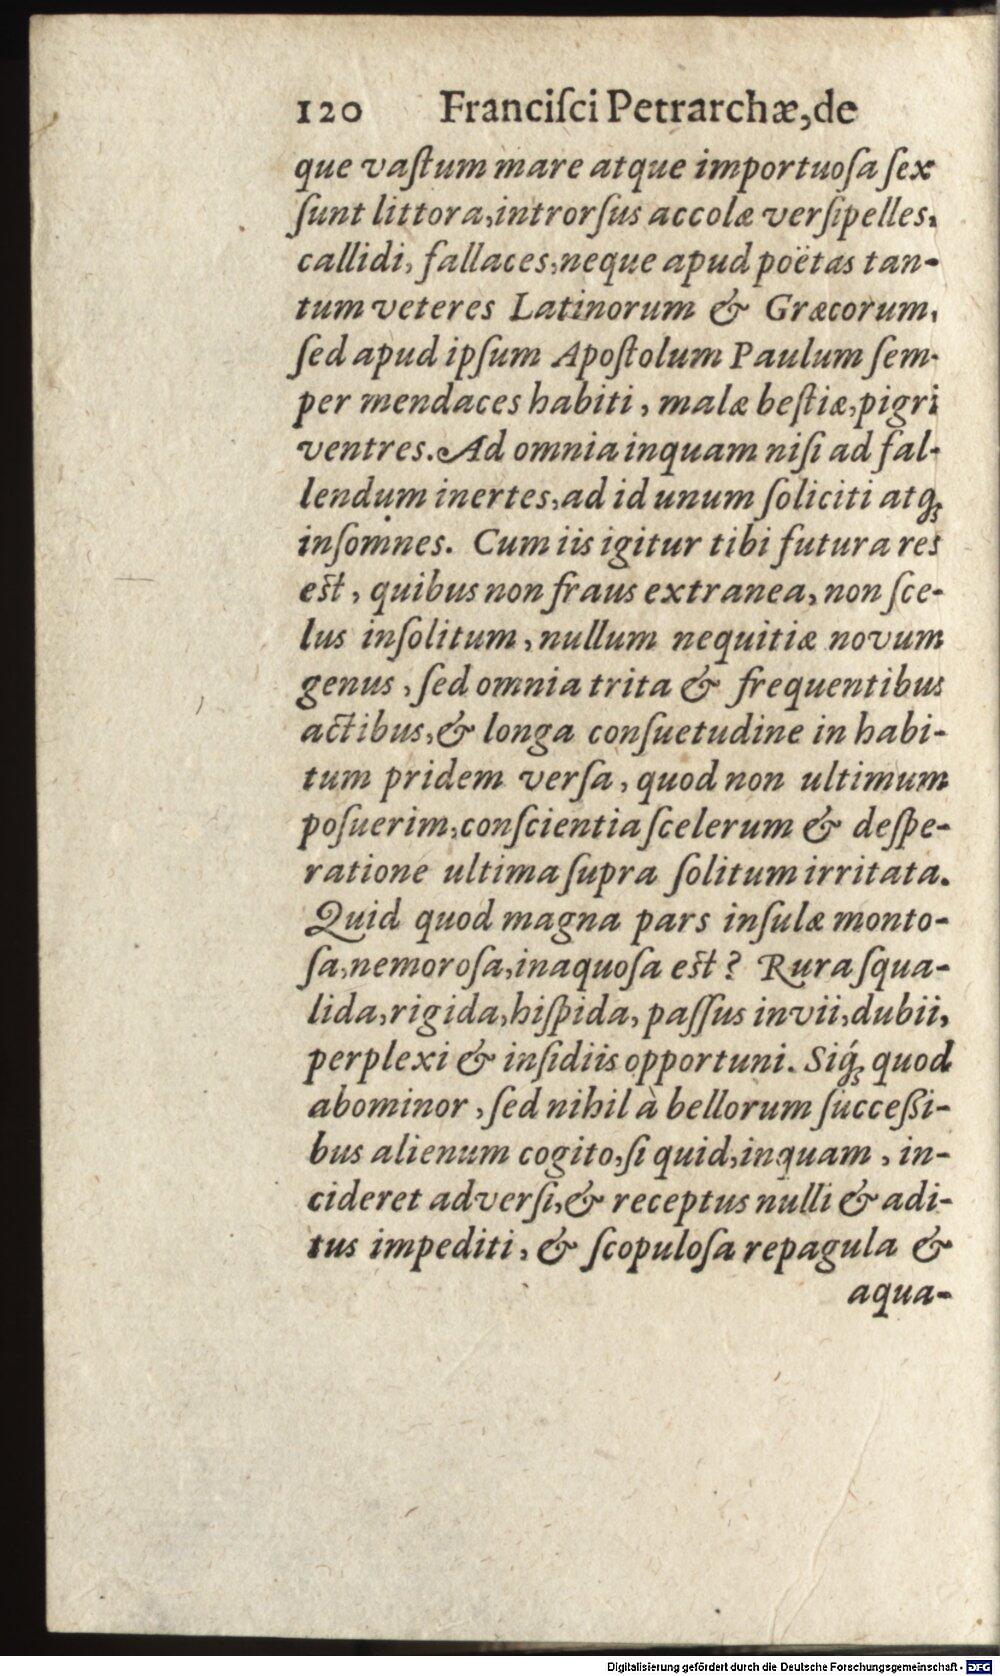 120 Franciſci Petrarchæ, de
que vaſtum mare atque importuoſa ſex
ſunt littora, introrſus accolæ verſipelles,
callidi, fallaces, neque apud poëtas tan-
tum veteres Latinorum & Græcorum,
ſed apud ipſum Apoſtolum Paulum ſem-
per mendaces habiti, malæ beſtiæ, pigri
ventres. Ad omnia inquam niſi ad fal-
lendum inertes, ad id unum ſoliciti atq́;
inſomnes. Cum iis igitur tibi futura res
eſt, quibus non fraus extranea, non ſce-
lus inſolitum, nullum nequitiæ novum
genus, ſed omnia trita & frequentibus
actibus, & longa conſuetudine in habi-
tum pridem verſa, quod non ultimum
poſuerim, conſcientia ſcelerum & deſpe-
ratione ultima ſupra ſolitum irritata.
Quid quod magna pars inſulæ monto-
ſa, nemoroſa, inaquoſa eſt? Rura ſqua-
lida, rigida, hiſpida, paſſus invii, dubii,
perplexi & inſidiis opportuni. Siq́; quod
abominor, ſed nihil à bellorum ſucceßi-
bus alienum cogito, ſi quid, inquam, in-
cideret adverſi, & receptus nulli & adi-
tus impediti, & ſcopuloſa repagula &
aqua-
Digitalisierung gefördert durch die Deutsche Forschungsgemeinschaft - DFG